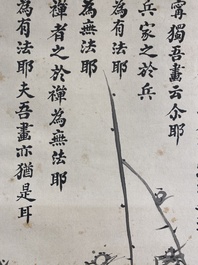 甯獨吾畫云尒耶
兵家之於兵
為有法耶
為無法耶
禪者之於禪為無法耶
為有法耶夫吾畫亦猶是耳